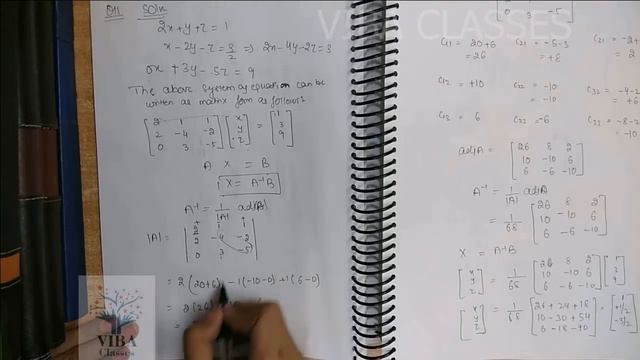 VIBA CLASSES
Q11 Soln
2x+y+z=1
x-2y-z=3/2 ⇒ 2x-4y-2z=3
0x+3y-5z=9
The above system of equation can be
written as matrix form as follows:
[2 1 1; 2 -4 -2; 0 3 -5] [x; y; z] = [1; 3; 9]
A X = B
X = A⁻¹B
A⁻¹ = 1/|A| adj(A)
|A| = |2 1 1; 2 -4 -2; 0 3 -5|
= 2(20+6) -1(-10-0) +1(6-0)
= 2(26)
=
0 3 -5
C11 = 20+6 C21 = -5-3 C31 = -2+
=26 = +8 = 2
C12 = +10 C22 = -10 C32 = -4-2
= -10
C13 = 6 C23 = -6 = -8-2
= -10
adjA = [26 8 2; 10 -10 6; 6 -6 -10]
A⁻¹ = 1/|A| adjA
= 1/68 [26 8 2; 10 -10 6; 6 -6 -10]
X = A⁻¹B
[x; y; z] = 1/68 [26 8 2; 10 -10 6; 6 -6 -10] [1; 3]
[x; y; z] = 1/68 [26+24+18; 10-30+54; 6-18-90] = [1; +1/2; -3/2]
VIBA
Classes